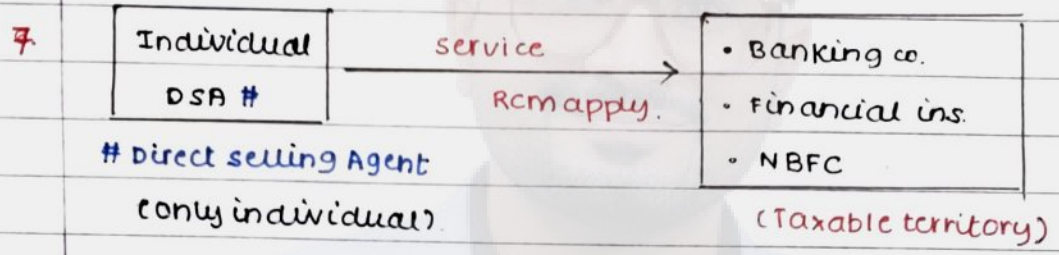 7.
Individual
DSA #
service
RCM apply.
• Banking co.
• Financial ins.
• NBFC
# Direct selling Agent
(only individual)
(Taxable territory)